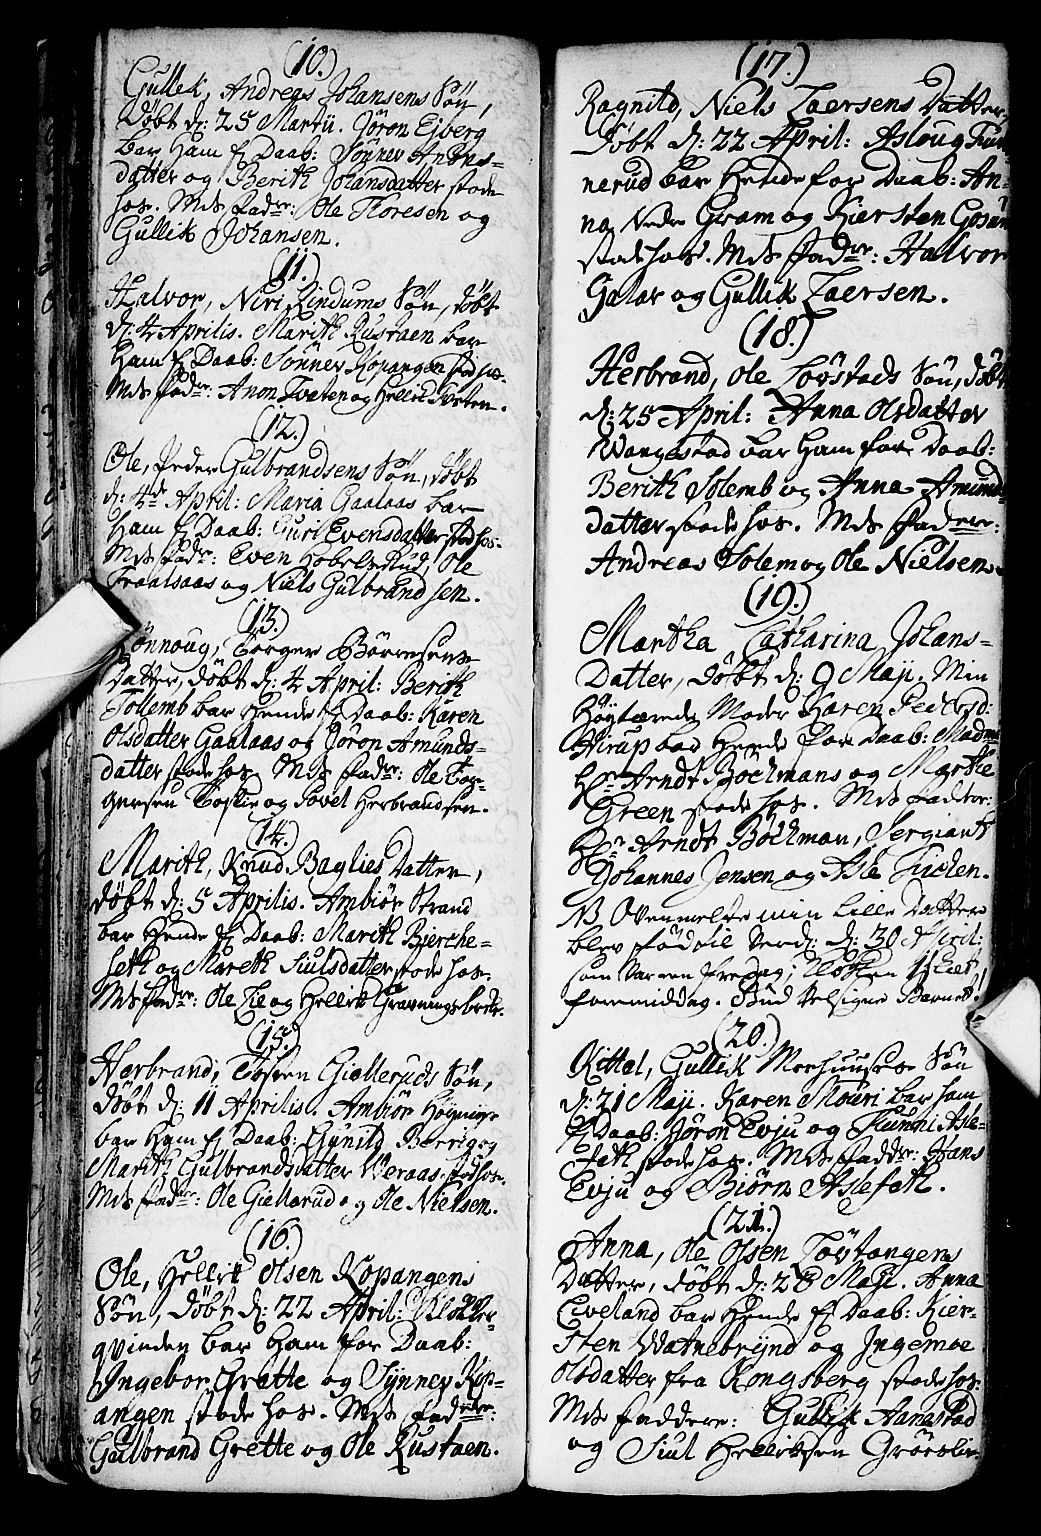 (10.)
Gullek, Andreas Johansens Søn,
Døbt d: 25 Martii. Jøron Ejberg
bar Ham f Daab: Sønnev Anders-
datter og Berith Johansdatter stode
hos. Mds fadr: Ole Floresen og
Gullik Johansen.
(11.)
Halvor, Niri Lindums Søn, døbt
d: 4 Aprilis. Marith Rustaen bar
Ham f Daab: Sønnev Kopangen stod hos.
Mds fadr: Anon Tvaten og Hellik Tveten.
(12.)
Ole, Peder Gulbrandsens Søn, døbt
d: 4de April: Maria Gaalaas bar
Ham f Daab: Guri Evensdatter stod hos.
Mds fadr: Even Hobelsrud, Ole
Fraalsaas og Niels Gulbrandsen.
(13.)
Rønnoug, Torger Børresens
Datter, døbt d: 4 April: Berith
Tollemb bar Hende f Daab: Karen
Olsdatter Gaalaas og Jøron Amunds-
datter stode hos. Mds fadr: Ole Tor-
gersen Toskie og Povel Herbrandsen.
(14.)
Marith, Knud Baglies Datter,
døbt d: 5 Aprilis. Ambiør Strand
bar Hende f Daab: Marith Bierche-
seth og Mareth Siulsdatter stode hos.
Mds fadr: Ole Lie og Hellik Gravningsbrek.
(15.)
Herbrand, Tosten Gielleruds Søn,
døbt d: 11 Aprilis. Ambiør Høgning
bar Ham f Daab: Gunild Berrig og
Marith Gulbrandsdatter Weraas stod hos.
Mds fadr: Ole Giellerud og Ole Nielsen.
(16.)
Ole, Hellik Olsen Kopangens
Søn, døbt d: 22 April: Klokker-
qvinden bar Ham for Daab:
Ingebor Grette og Synnev Kop-
angen stode hos. Mds fadrer:
Gulbrand Grette og Ole Rustaen.
(17.)
Ragnild, Niels Laersens Datter,
Døbt d: 22 April: Asloug Fun-
nerud bar Hende for Daab: An-
na Vedr Gram og Kiersten Gosam
stode hos. Mds fadrr: Halvor
Galar og Gullik Laersen.
(18.)
Herbrand, Ole Løvstads Søn, døbt
d: 25 April: Anna Olsdatter
Wangestad bar Ham for Daab:
Berith Solemb og Anna Amunds-
datter stode hos. Mds fadere:
Andreas Solem og Ole Nielsen.
(19.)
Martha Catharina Johans-
Datter, døbt d: 9 Maji. Min
Høytærede Moder Karen Pedersd:
Wirup bar Hende for Daab: Madme
Hr Arndt Bøckmans og Marthe
Green stode hos. Mds fadrer:
Hr Arndt Bøckman, Sergiant
Johannes Jensen og Asle Kirchen.
NB Ovenmelte min Lille Datter
blev fød til Verd: d: 30 April:
som var en fredag, Klokken 11 slet,
formiddag. Gud velsigne Barnet!
(20.)
Kittel, Gullik Moehuuses Søn
d: 21 Maji. Karen Moeri bar ham
f Daab: Jøron Evju og Gunni Asle-
fath stode hos. Mds fadder: Hans
Evju og Biørn Aslefath.
(21.)
Anna, Ole Olsen Løvtangens
Datter, døbt d: 28 Maji. Anna
Eveland bar Hende f Daab: Kier-
sten Watnebrynd og Ingeborg
Olsdatter fra Kongsberg stode hos.
Mds faddere: Gullik Aanestad
og Siul Helliksen Grøslie.